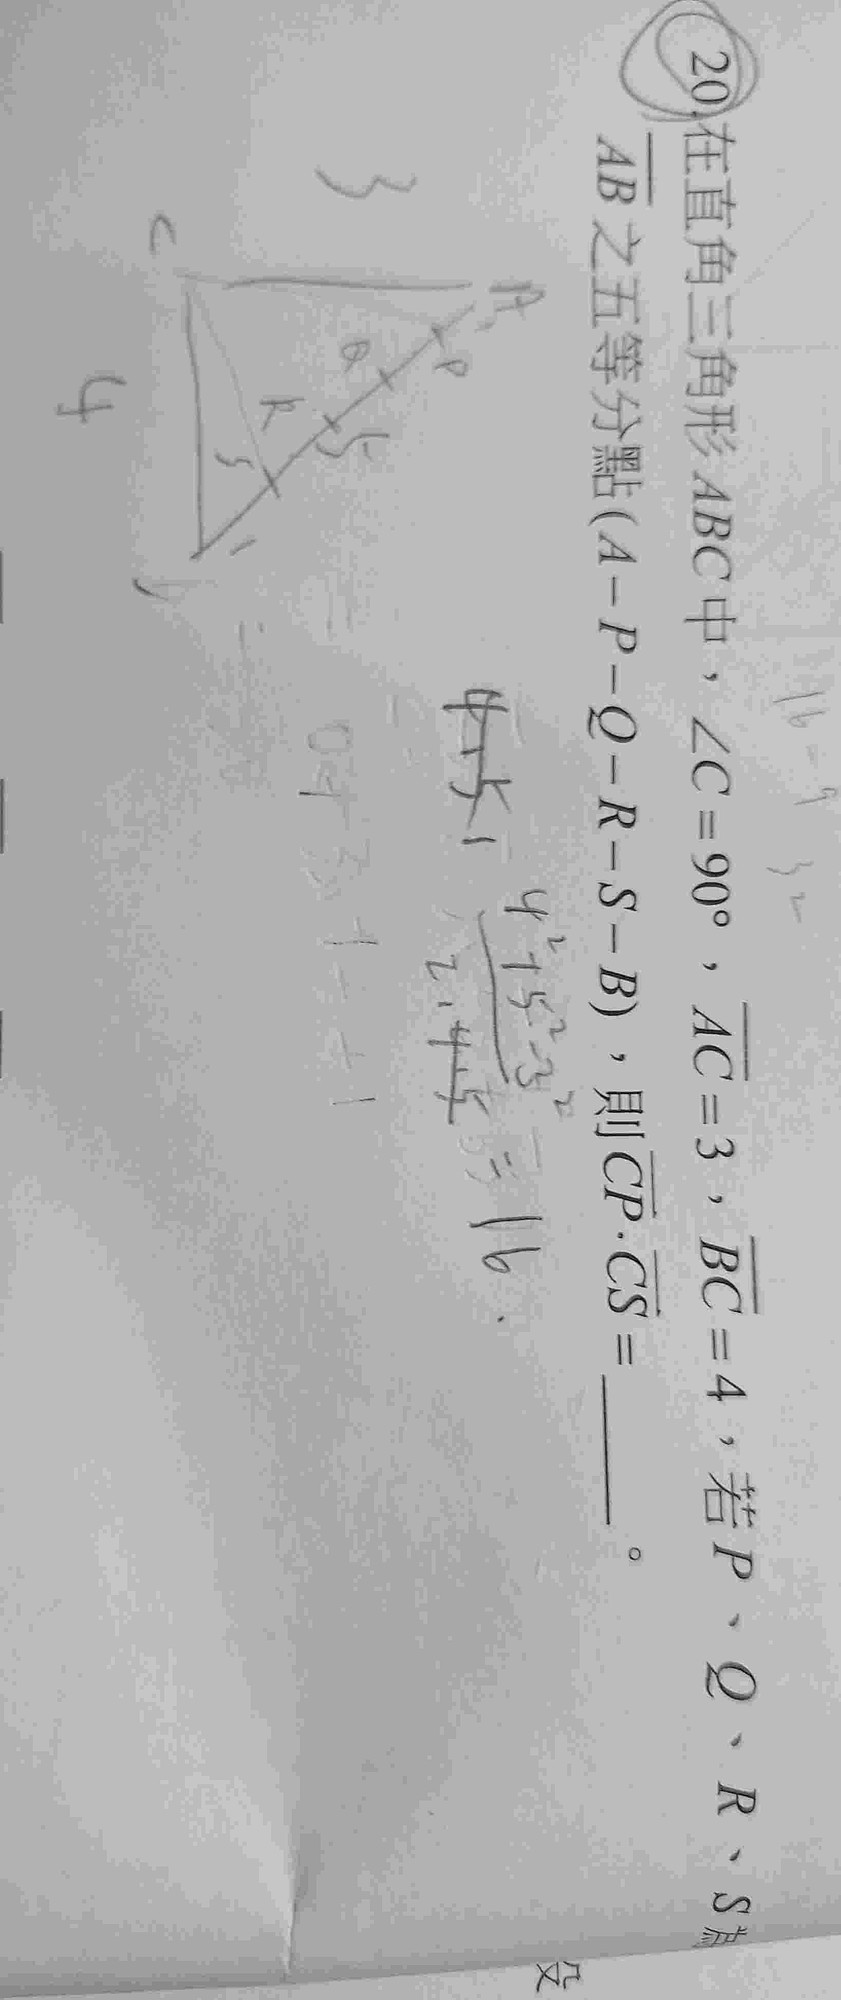 20.在直角三角形ABC中，∠C=90°，AC=3，BC=4，若P、Q、R、S為
AB之五等分點(A-P-Q-R-S-B)，則CP·CS=______。
16-9 3²
A
P
Q
5
R
S
3
C
4
4²+5²-3²
2·4·5
16